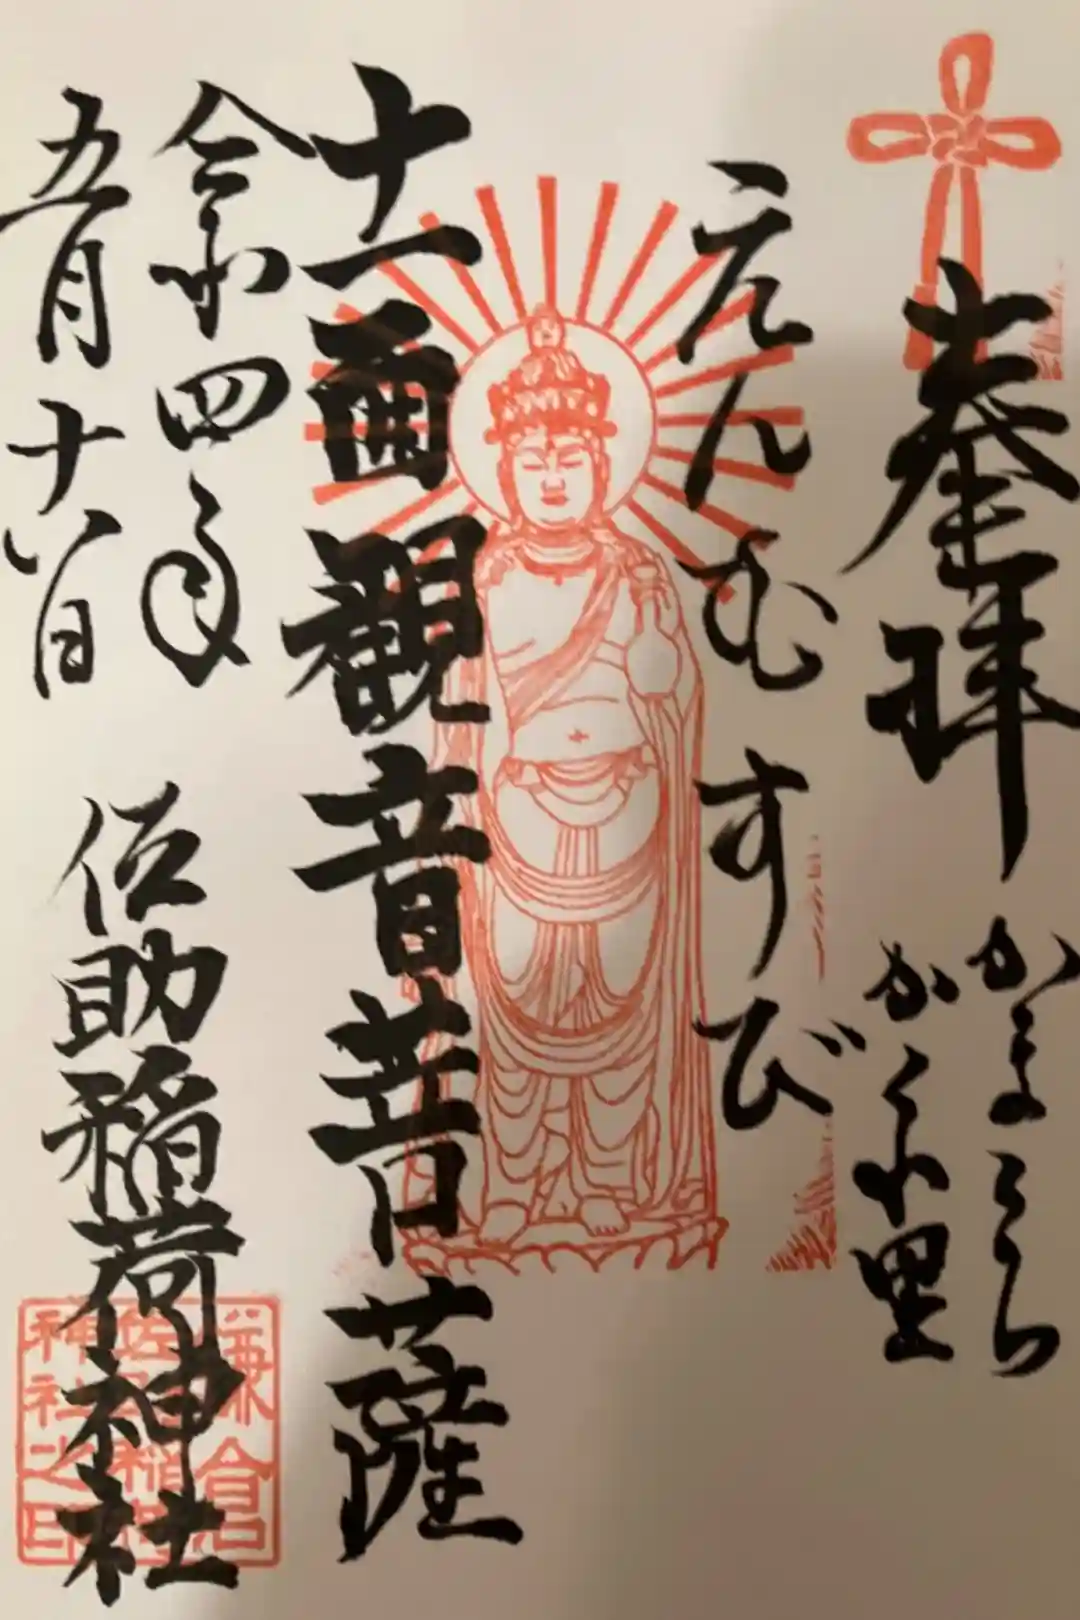 奉拝
かまくら
かくれ里
えんむすび
十一面観音菩薩
令和四年
五月十八日
佐助稲荷神社
鎌倉
佐助稲荷
神社之印